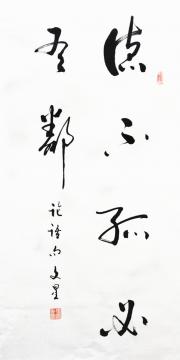 德不孤必
有鄰
論語句文星